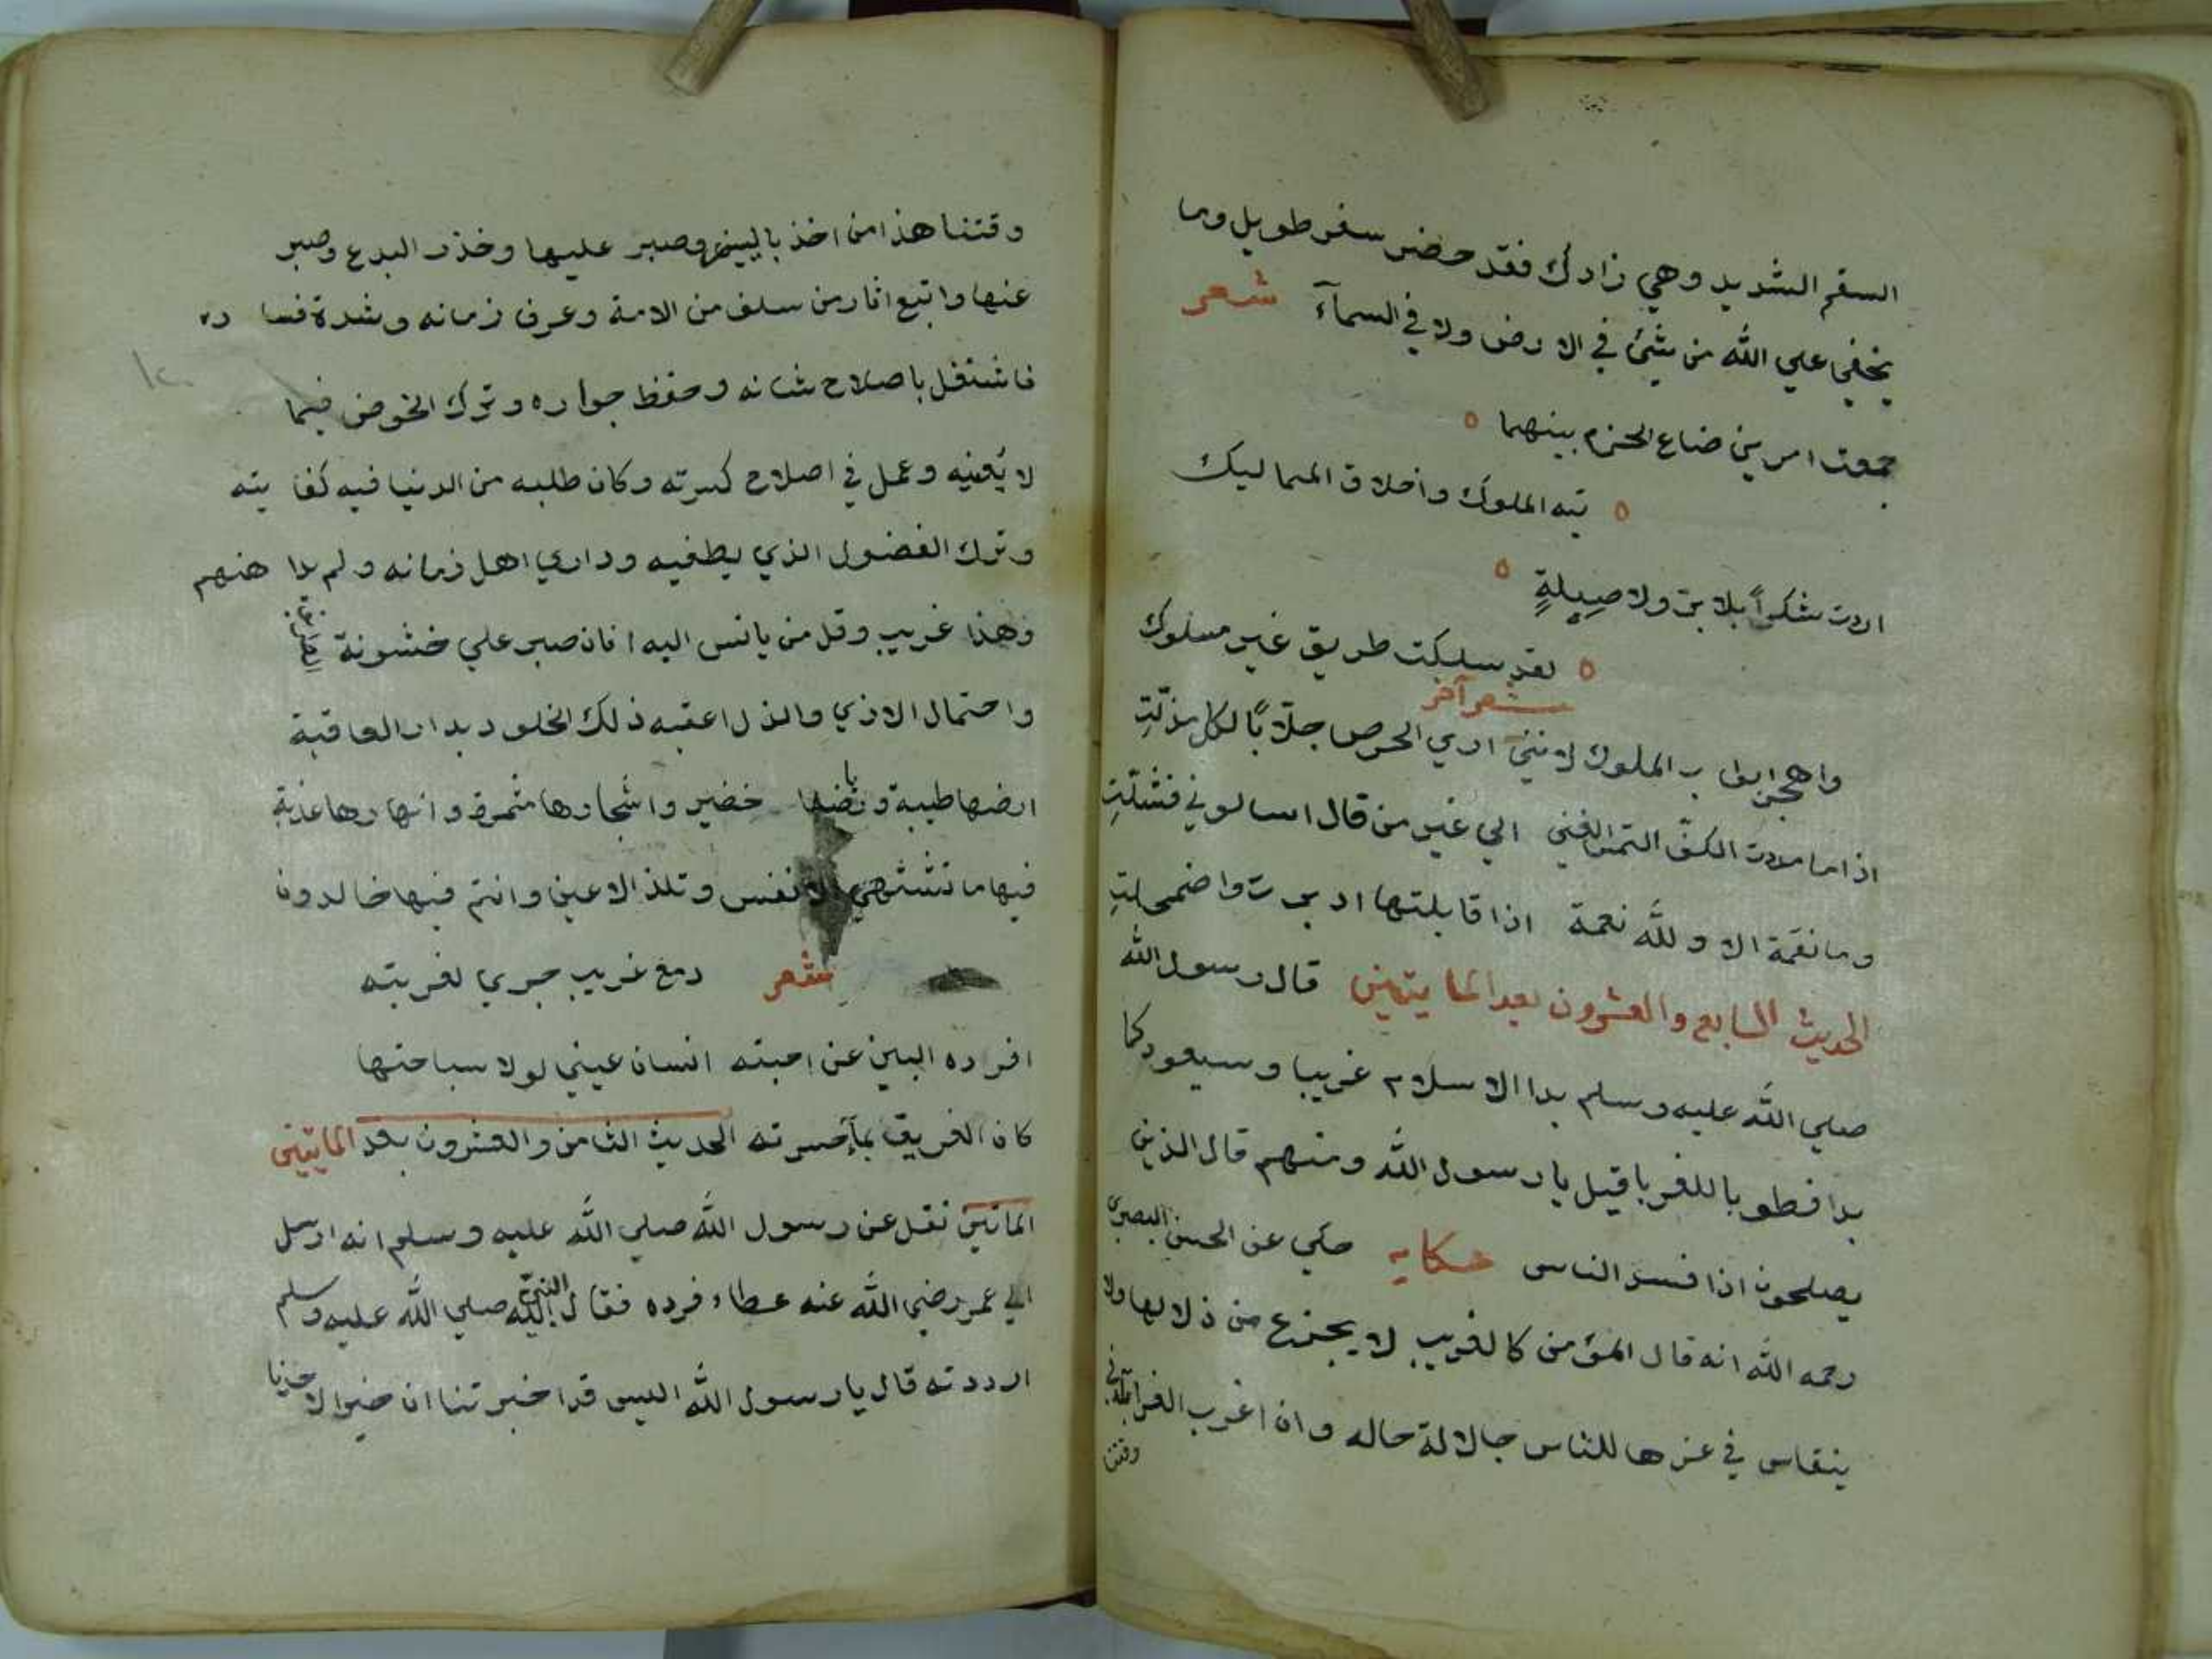 السقم الشديد وهي زادك فقد حضر سفر طويل وما
يخفي علي الله من شئ في الارض ولا في السمآء شعر
جمعت امرين ضاع الحزم بينهما
تيه الملوك واخلاق المماليك
اردت شكراً بلا بر ولا صِيلةٍ
لقد سلكت طريق غير مسلوك
شعر آخر
واهجر ابواب الملوك لانني اري الحرص جلاّبًا لكل مذلّتِ
اذا ما مددت الكفّ التمس الغني الي غير من قال اسالوني فشلّتِ
وما نقمة الا ولله نعمة اذا قابلتها ادبرت واضمحلتِ
الحديث السابع والعشرون بعد المايتين قال رسول الله
صلي الله عليه وسلم بدا الاسلام غريبا وسيعود كما
بدا فطوبا للغربا قيل يا رسول الله ومنهم قال الذين
يصلحون اذا فسد الناس حكايه حكي عن الحسن البصري
رحمه الله انه قال المؤمن كالغريب لا يجزع من ذلالها ولا
ينفاس في عزها للناس حالا له حاله وان اغرب الغرابة في
وقتنا
وقتنا هذا من اخذ بالسنة وصبر عليها وحذر البدع وصبر
عنها واتبع اثار من سلف من الامة وعرف زمانه وشدة فساده
فاشتغل باصلاح شانه وحفظ جواره وترك الخوض فيما
لا يُعنيه وعمل في اصلاح كسرته وكان طلبه من الدنيا فيه كفايته
وترك الفضول الذي يطغيه وداري اهل زمانه ولم يداهنهم
وهذا غريب وقل من يانس اليه افان صبر علي خشونة
واحتمال الاذي والذل اعقبه ذلك الخلود بدار العاقبة
ارضها طيبة ورياضها خضير واشجارها مثمرة وانهارها عذبة
فيها ما تشتهي الانفس وتلذ الاعين وانتم فيها خالدون
شعر دمع غريب جري لغربته
افرده البين عن احبته انسان عيني لولا سباحتها
كان الغريق بمآء حسرته الحديث الثامن والعشرون بعد المايتين
الماتين نقل عن رسول الله صلي الله عليه وسلم انه ارسل
الي عمر رضي الله عنه عطاء فرده فقال النبيّ صلي الله عليه وسلم
ارددته قال يا رسول الله اليس قد اخبرتنا ان خيرا لاحدنا